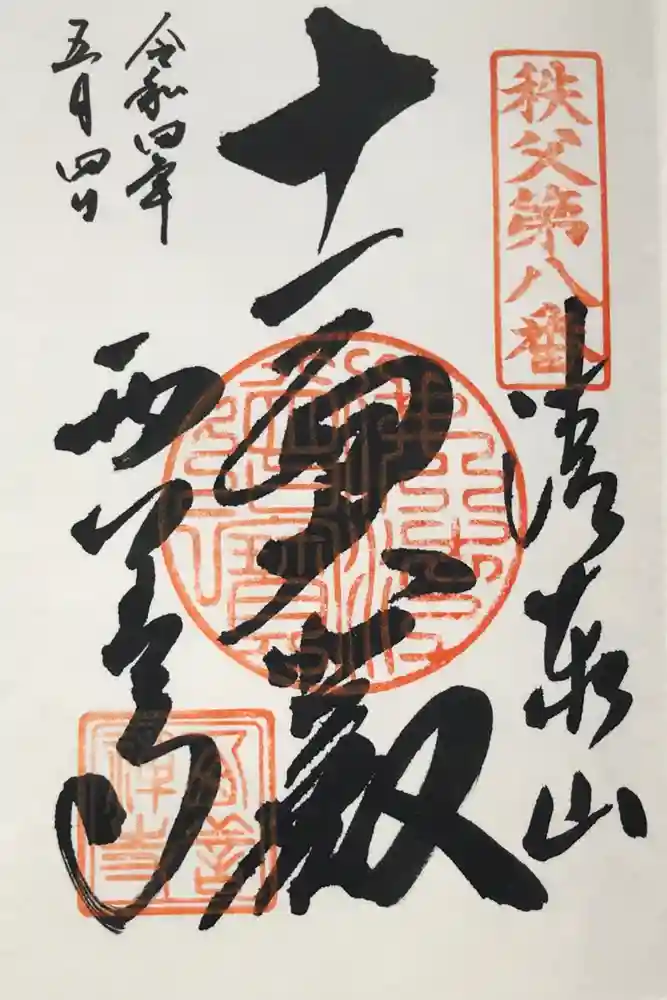 秩父第八番
清泰山
十一面
佛法僧寶
西善寺
令和四年
五月四日